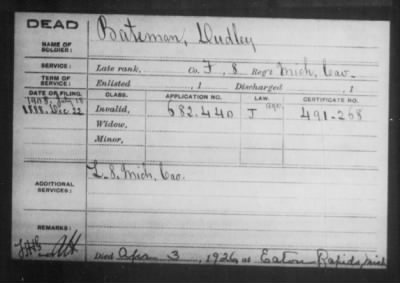 DEAD
NAME OF SOLDIER: Bateman, Dudley
SERVICE: Late rank, Co. F, 8 Reg't Mich. Cav.
TERM OF SERVICE: Enlisted , 1 Discharged , 1
DATE OF FILING. CLASS. APPLICATION NO. LAW. CERTIFICATE NO.
1908, July 18
1888, Dec. 22 Invalid, 682.440 J 491-268
Widow,
Minor,
ADDITIONAL SERVICES: L. 8. Mich. Cav.
REMARKS:
Died 3, 1926, at Eaton Rapids, Mich